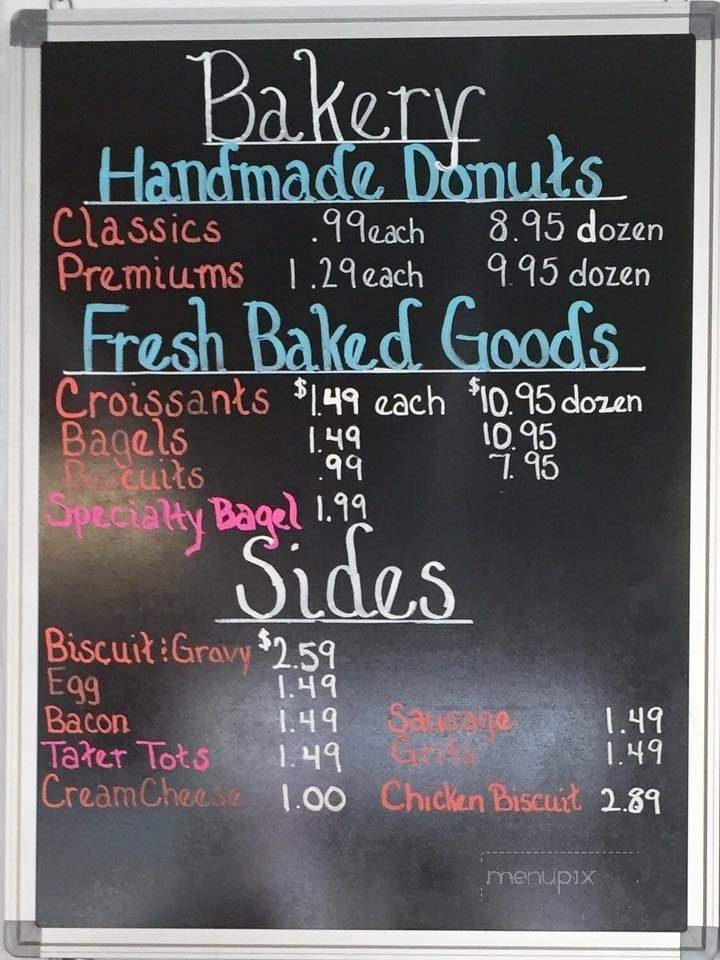 Bakery
Handmade Donuts
Classics .99 each 8.95 dozen
Premiums 1.29 each 9.95 dozen
Fresh Baked Goods
Croissants $1.49 each $10.95 dozen
Bagels 1.49 10.95
Biscuits .99 7.95
Specialty Bagel 1.99
Sides
Biscuit & Gravy $2.59
Egg 1.49
Bacon 1.49 Sausage 1.49
Tater Tots 1.49 Grits 1.49
Cream Cheese 1.00 Chicken Biscuit 2.89
menupix